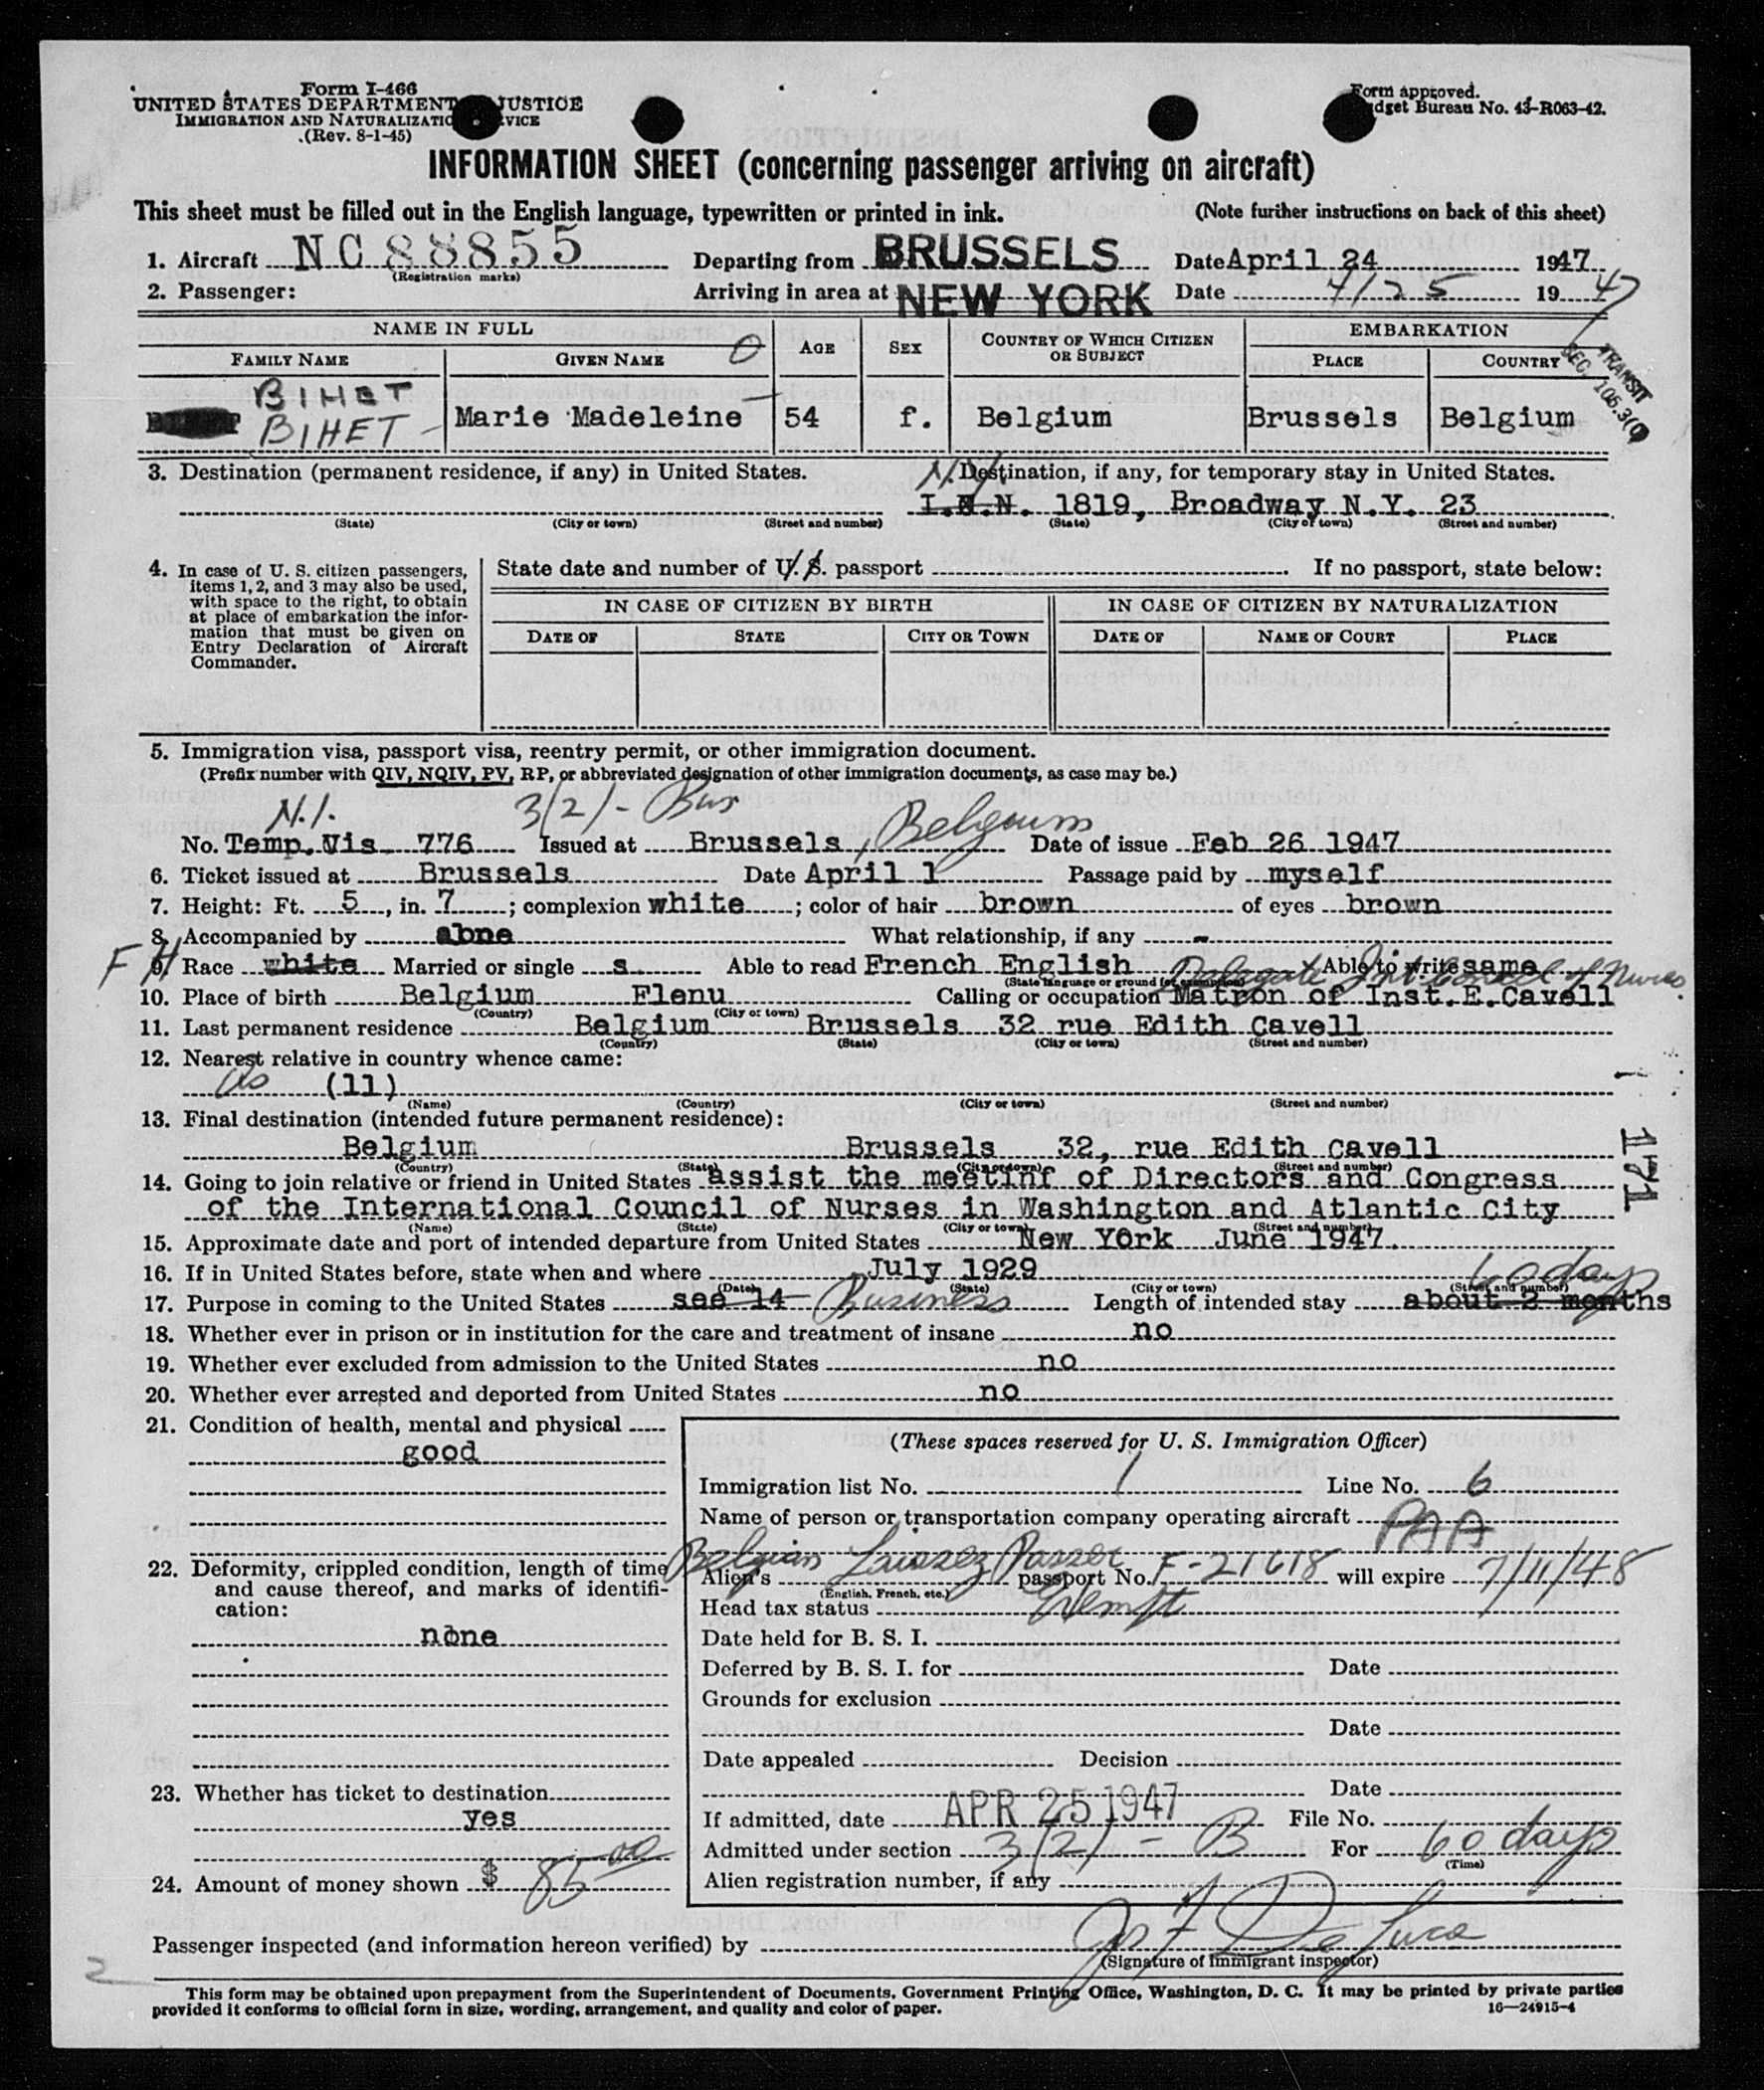 Form I-466
UNITED STATES DEPARTMENT JUSTICE
IMMIGRATION AND NATURALIZATIO VICE
(Rev. 8-1-45)
Form approved.
dget Bureau No. 43-R063-42.
INFORMATION SHEET (concerning passenger arriving on aircraft)
This sheet must be filled out in the English language, typewritten or printed in ink. (Note further instructions on back of this sheet)
1. Aircraft NC 88855 Departing from BRUSSELS Date April 24 1947
(Registration marks)
2. Passenger: Arriving in area at NEW YORK Date 4/25 1947
NAME IN FULL AGE SEX COUNTRY OF WHICH CITIZEN OR SUBJECT EMBARKATION
FAMILY NAME GIVEN NAME PLACE COUNTRY
TRANSIT
SEC. 105.3(
BIHET
BIHET Marie Madeleine 54 f. Belgium Brussels Belgium
3. Destination (permanent residence, if any) in United States. Destination, if any, for temporary stay in United States.
N.Y.
I.N.N. 1819, Broadway N.Y. 23
(State) (City or town) (Street and number) (State) (City of town) (Street and number)
4. In case of U. S. citizen passengers, items 1, 2, and 3 may also be used, with space to the right, to obtain at place of embarkation the information that must be given on Entry Declaration of Aircraft Commander.
State date and number of U. S. passport If no passport, state below:
IN CASE OF CITIZEN BY BIRTH IN CASE OF CITIZEN BY NATURALIZATION
DATE OF STATE CITY OR TOWN DATE OF NAME OF COURT PLACE
5. Immigration visa, passport visa, reentry permit, or other immigration document.
(Prefix number with QIV, NQIV, PV, RP, or abbreviated designation of other immigration documents, as case may be.)
N.I. 3(2) - Bus
No. Temp. Vis 776 Issued at Brussels, Belgium Date of issue Feb 26 1947
6. Ticket issued at Brussels Date April 1 Passage paid by myself
7. Height: Ft. 5, in. 7; complexion white; color of hair brown of eyes brown
8. Accompanied by abne What relationship, if any -
F H
9. Race white Married or single s. Able to read French English Able to write same
(State language or ground for exemption)
Delegate Int. Council of Nurses
10. Place of birth Belgium Flenu Calling or occupation Matron of Inst.E.Cavell
(Country) (City or town)
11. Last permanent residence Belgium Brussels 32 rue Edith Cavell
(Country) (State) (City or town) (Street and number)
12. Nearest relative in country whence came:
as (11)
(Name) (Country) (City or town) (Street and number)
13. Final destination (intended future permanent residence):
Belgium Brussels 32, rue Edith Cavell
(Country) (State) (City or town) (Street and number)
14. Going to join relative or friend in United States assist the meetinf of Directors and Congress
of the International Council of Nurses in Washington and Atlantic City
(Name) (State) (City or town) (Street and number)
171
15. Approximate date and port of intended departure from United States New YOrk June 1947.
16. If in United States before, state when and where July 1929
(Date) (State) (City or town) (Street and number)
60 days
17. Purpose in coming to the United States see 14 Business Length of intended stay about 2 months
18. Whether ever in prison or in institution for the care and treatment of insane no
19. Whether ever excluded from admission to the United States no
20. Whether ever arrested and deported from United States no
21. Condition of health, mental and physical
good
22. Deformity, crippled condition, length of time and cause thereof, and marks of identification:
none
23. Whether has ticket to destination
yes
24. Amount of money shown $ 85 00
(These spaces reserved for U. S. Immigration Officer)
Immigration list No. 1 Line No. 6
Name of person or transportation company operating aircraft PAA
Belgian Laissez Passer
Alien's passport No. F-21618 will expire 7/11/48
(English, French, etc.)
Head tax status Exempt
Date held for B. S. I.
Deferred by B. S. I. for Date
Grounds for exclusion
Date
Date appealed Decision
Date
If admitted, date APR 25 1947 File No.
Admitted under section 3(2) - B For 60 days
(Time)
Alien registration number, if any
Passenger inspected (and information hereon verified) by Jos F De Luca
(Signature of immigrant inspector)
2
This form may be obtained upon prepayment from the Superintendent of Documents, Government Printing Office, Washington, D. C. It may be printed by private parties
provided it conforms to official form in size, wording, arrangement, and quality and color of paper. 16—24915-4